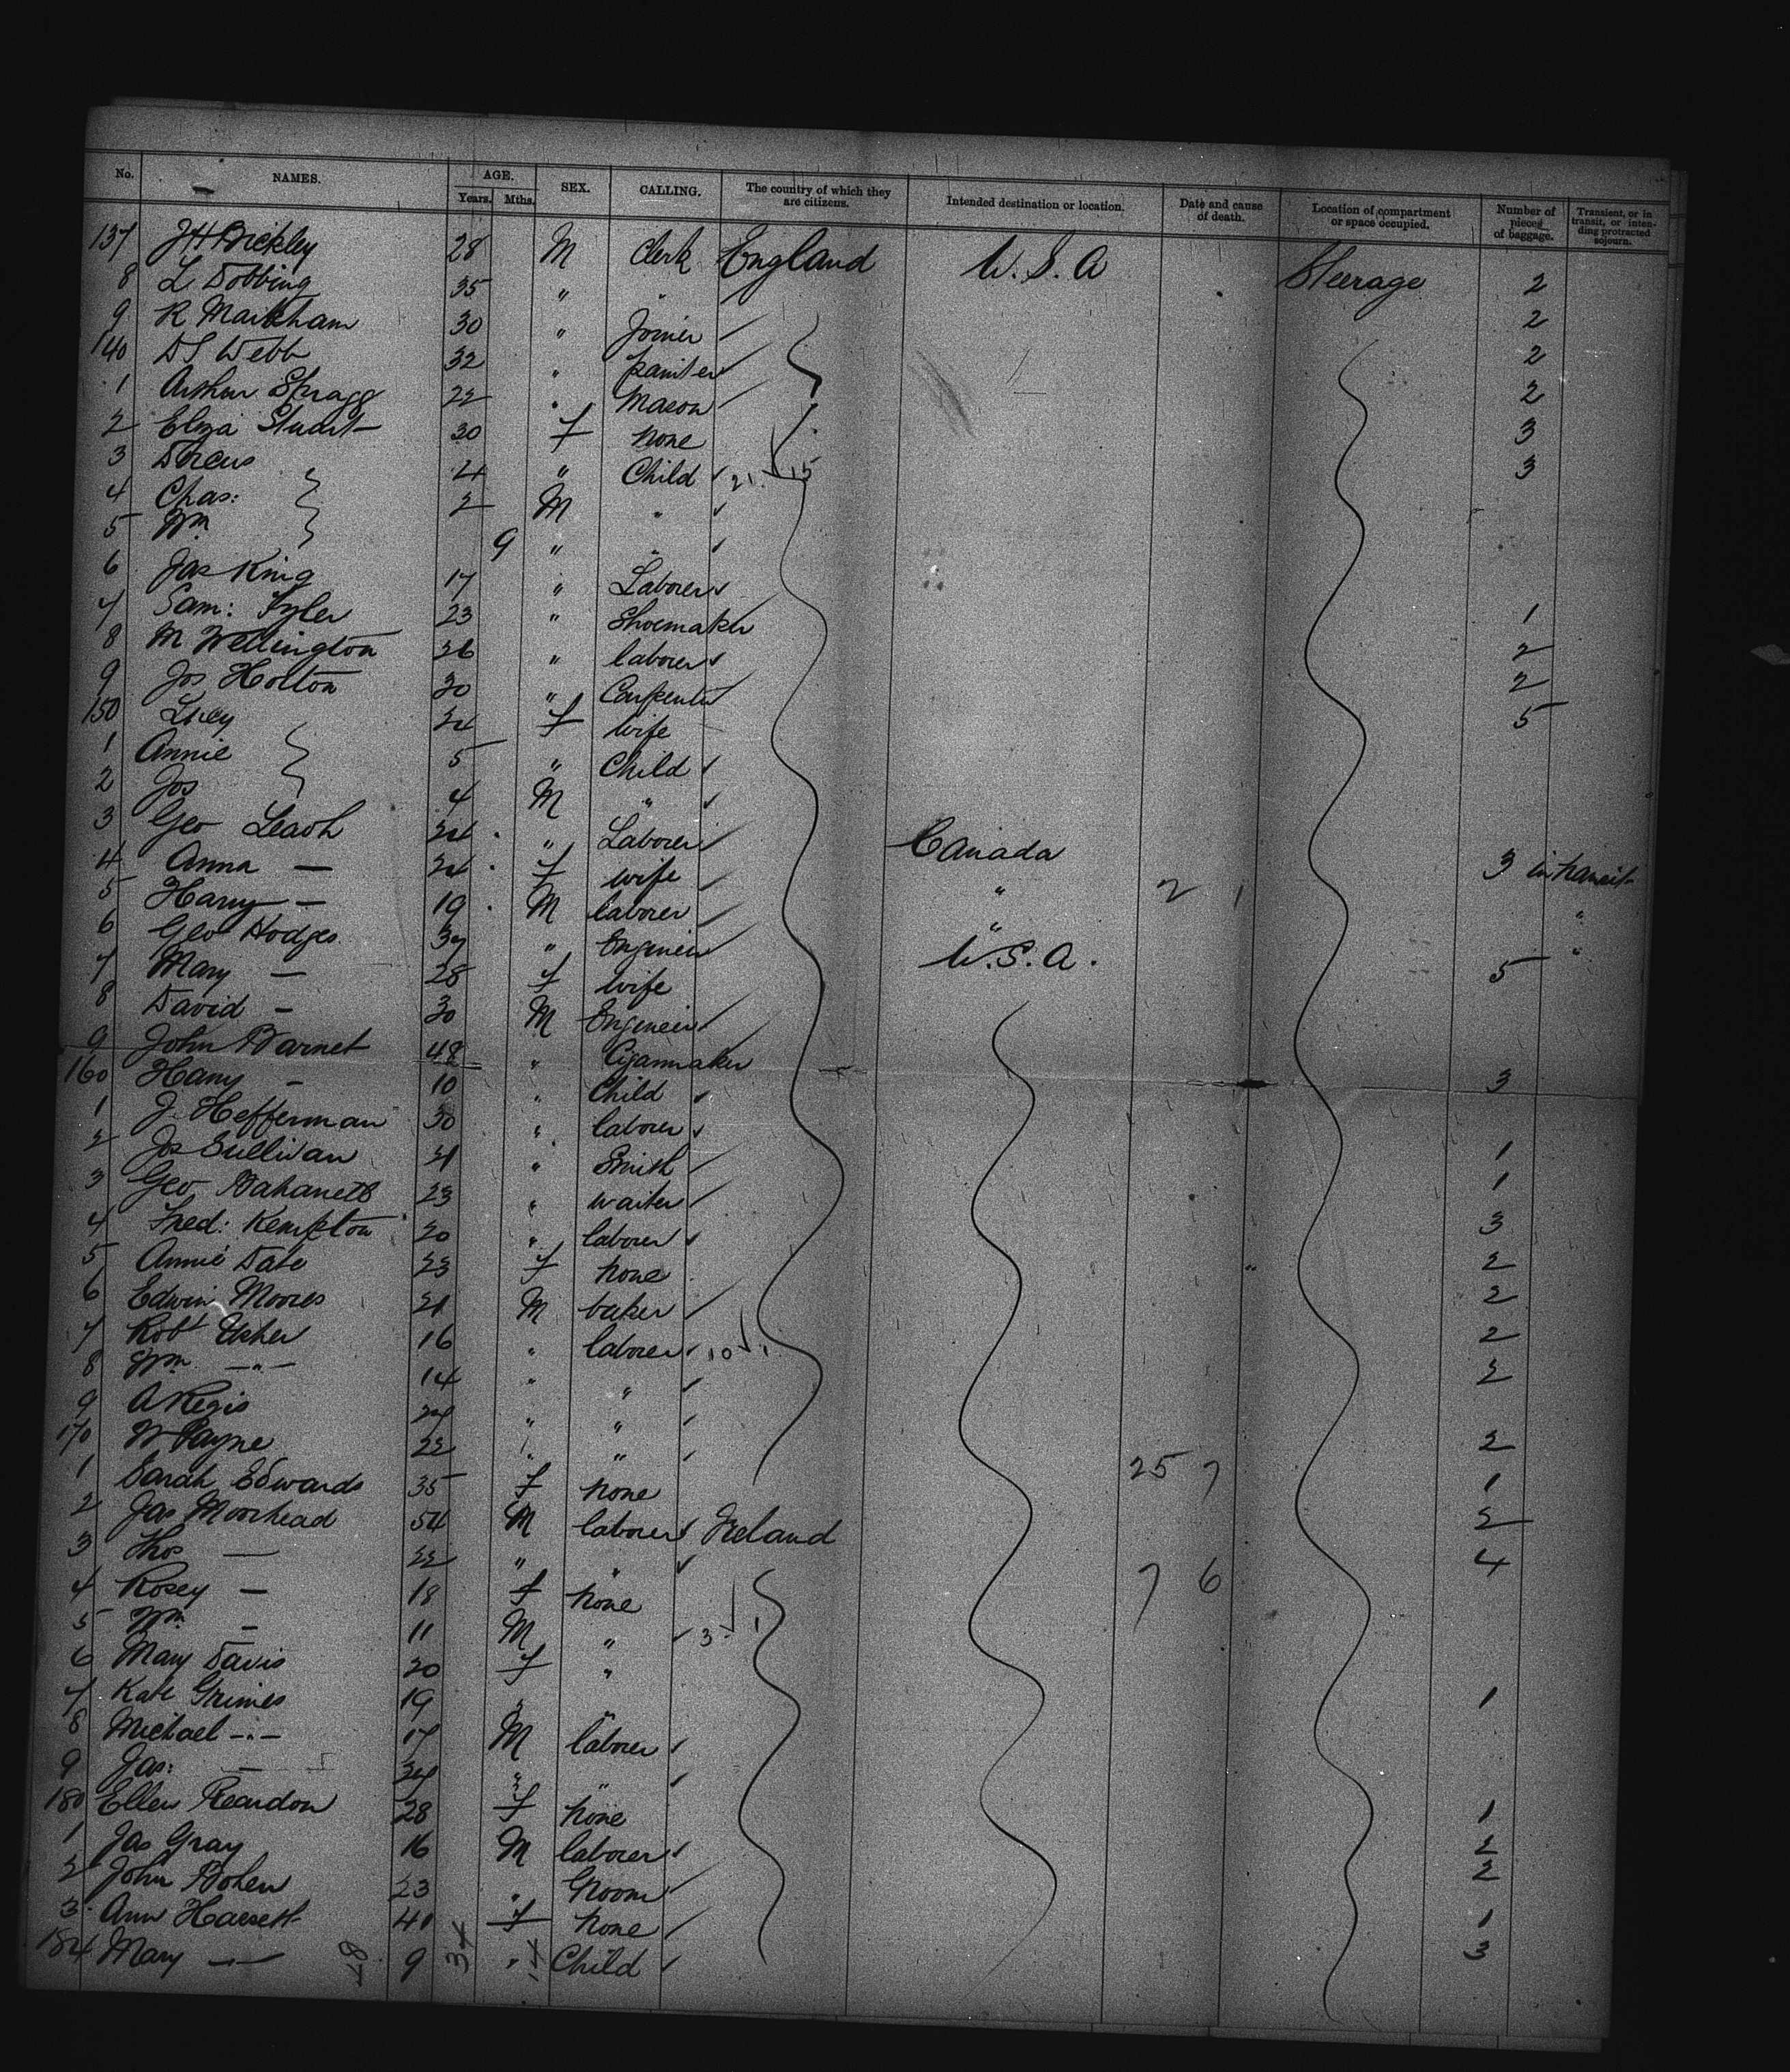 No. NAMES. AGE. Years. Mths. SEX. CALLING. The country of which they are citizens. Intended destination or location. Date and cause of death. Location of compartment or space occupied. Number of pieces of baggage. Transient, or in transit, or intending protracted sojourn.
137 JH Bickley 28 M Clerk England U.S.A Steerage 2
8 L Dobbing 35 " " 2
9 R Markham 30 " Joiner 2
140 DS Webb 32 " painter 2
1 Arthur Spragg 22 " Mason 3
2 Eliza Stuart 30 f none 3
3 Dorcus 4 " Child 21 15
4 Chas: 2 M "
5 Wm 9 " "
6 Jas King 17 " Laborer 1
7 Sam: Tyler 23 " Shoemaker 2
8 M Wellington 26 " laborer 2
9 Jos Holton 30 " Carpenter 5
150 Lucy 24 f wife
1 Annie 5 " Child
2 Jos 4 M "
3 Geo Leach 24 " Laborer Canada 3 in transit
4 Anna — 24 f wife " 2 1 "
5 Harry — 19 M laborer " "
6 Geo Hodges 37 " Engineer U.S.A. 5
7 Mary — 28 f wife
8 David — 30 M Engineer
9 John Barnet 48 " Cigarmaker 3
160 Harry — 10 " Child
1 J. Hefferman 30 " laborer 1
2 Jos Sullivan 21 " Smith 1
3 Geo 23 " waiter 3
4 Fred: Kempton 20 " laborer 2
5 Annie Date 23 f none 2
6 Edwin Moores 21 M baker 2
7 Robt Usher 16 " laborer 10 1 2
8 Wm —"— 14 " "
9 A Regis 24 " " 2
170 W Payne 22 " " 25 7 1
1 Sarah Edwards 35 f none 2
2 Jas Moorhead 54 M laborer Ireland 4
3 Thos — 22 " " 7 6
4 Rosey — 18 f none
5 Wm — 11 M " 3 1
6 Mary Davis 20 f " 1
7 Kate Grimes 19 " "
8 Michael —"— 17 M laborer
9 Jas: — 24 " "
180 Ellen Reardon 28 f none 1
1 Jas Gray 16 M laborer 2
2 John Bohen 23 " Groom 2
3 Ann 40 f none 1
184 Mary — 9 " Child 3